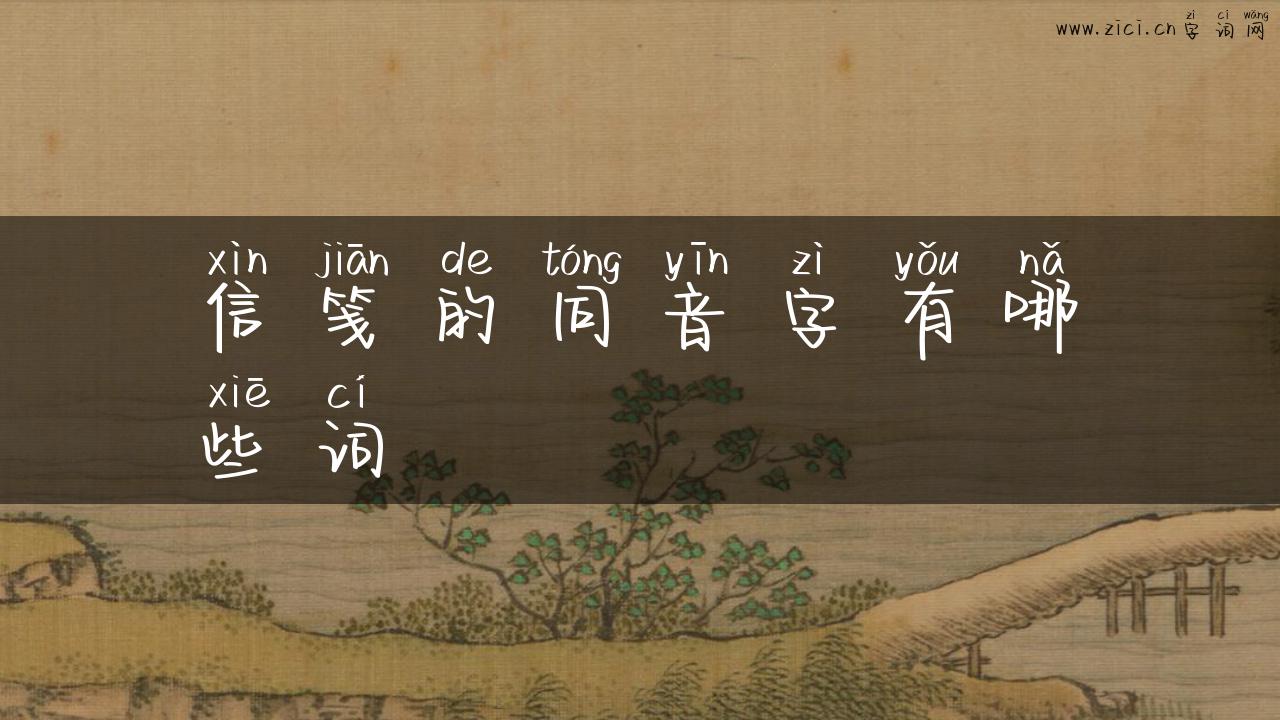 zì cí wǎng
www.zici.cn 字 词 网
xìn jiān de tóng yīn zì yǒu nǎ
信 笺 的 同 音 字 有 哪
xiē cí
些 词